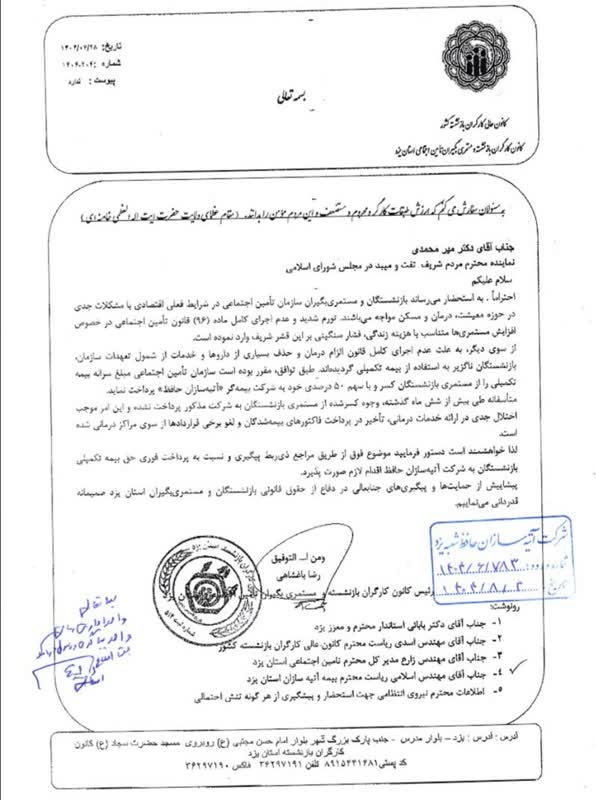 تاریخ: ۱۴۰۴/۰۷/۲۸
شماره: ۱۴۰۴-۲۰۴
پیوست: ندارد
بسمه تعالی
کانون عالی کارگران بازنشسته کشور
کانون کارگران بازنشسته و مستمری بگیران تأمین اجتماعی استان یزد
به مسئولان سفارش می کنم که ارزش طبقات کارگر و محروم و مستضعف و این مردم مؤمن را بدانند. (مقام عظمای ولایت حضرت آیت اله العظمی خامنه ای)
جناب آقای دکتر میر محمدی
نماینده محترم مردم شریف تفت و میبد در مجلس شورای اسلامی
سلام علیکم
احتراماً . به استحضار می‌رساند بازنشستگان و مستمری‌بگیران سازمان تأمین اجتماعی در شرایط فعلی اقتصادی با مشکلات جدی
در حوزه معیشت، درمان و مسکن مواجه می‌باشند. تورم شدید و عدم اجرای کامل ماده (۹۶) قانون تأمین اجتماعی در خصوص
افزایش مستمری‌ها متناسب با هزینه زندگی، فشار سنگینی بر این قشر شریف وارد نموده است.
از سوی دیگر، به علت عدم اجرای کامل قانون الزام درمان و حذف بسیاری از داروها و خدمات از شمول تعهدات سازمان،
بازنشستگان ناگزیر به استفاده از بیمه تکمیلی گردیده‌اند. طبق توافق، مقرر بوده است سازمان تأمین اجتماعی مبلغ سرانه بیمه
تکمیلی را از مستمری بازنشستگان کسر و با سهم ۵۰ درصدی خود به شرکت بیمه‌گر «آتیه‌سازان حافظ» پرداخت نماید.
متأسفانه طی بیش از شش ماه گذشته، وجوه کسرشده از مستمری بازنشستگان به شرکت مذکور پرداخت نشده و این امر موجب
اختلال جدی در ارائه خدمات درمانی، تأخیر در پرداخت فاکتورهای بیمه‌شدگان و لغو برخی قراردادها از سوی مراکز درمانی شده
است.
لذا خواهشمند است دستور فرمایید موضوع فوق از طریق مراجع ذی‌ربط پیگیری و نسبت به پرداخت فوری حق بیمه تکمیلی
بازنشستگان به شرکت آتیه‌سازان حافظ اقدام لازم صورت پذیرد.
پیشاپیش از حمایت‌ها و پیگیری‌های جنابعالی در دفاع از حقوق قانونی بازنشستگان و مستمری‌بگیران استان یزد صمیمانه
قدردانی می‌نماییم.
ومن ا... التوفیق
رضا باغشاهی
رئیس کانون کارگران بازنشسته و مستمری بگیران تأمین
شرکت آتیه سازان حافظ شعبه یزد
شماره ورود: ۱۴۰۴/۶۱۷۸۳
تاریخ: ۱۴۰۴/۸/۳
رونوشت:
۱- جناب آقای دکتر بابائی استاندار محترم و معزز یزد
۲- جناب آقای مهندس اسدی ریاست محترم کانون عالی کارگران بازنشسته کشور
۳- جناب آقای مهندس زارع مدیر کل محترم تامین اجتماعی استان یزد
۴- جناب آقای مهندس اسلامی ریاست محترم بیمه آتیه سازان استان یزد
۵- اطلاعات محترم نیروی انتظامی جهت استحضار و پیشگیری از هر گونه تنش احتمالی
آدرس : آدرس : یزد – بلوار مدرس - جنب پارک بزرگ شهر بلوار امام حسن مجتبی (ع) روبروی مسجد حضرت سجاد (ع) کانون
کارگران بازنشسته استان یزد
کد پستی ۸۹۱۵۴۳۱۶۸۱ تلفن ۳۶۲۹۷۱۹۱ فاکس ۳۶۲۹۷۱۹۰